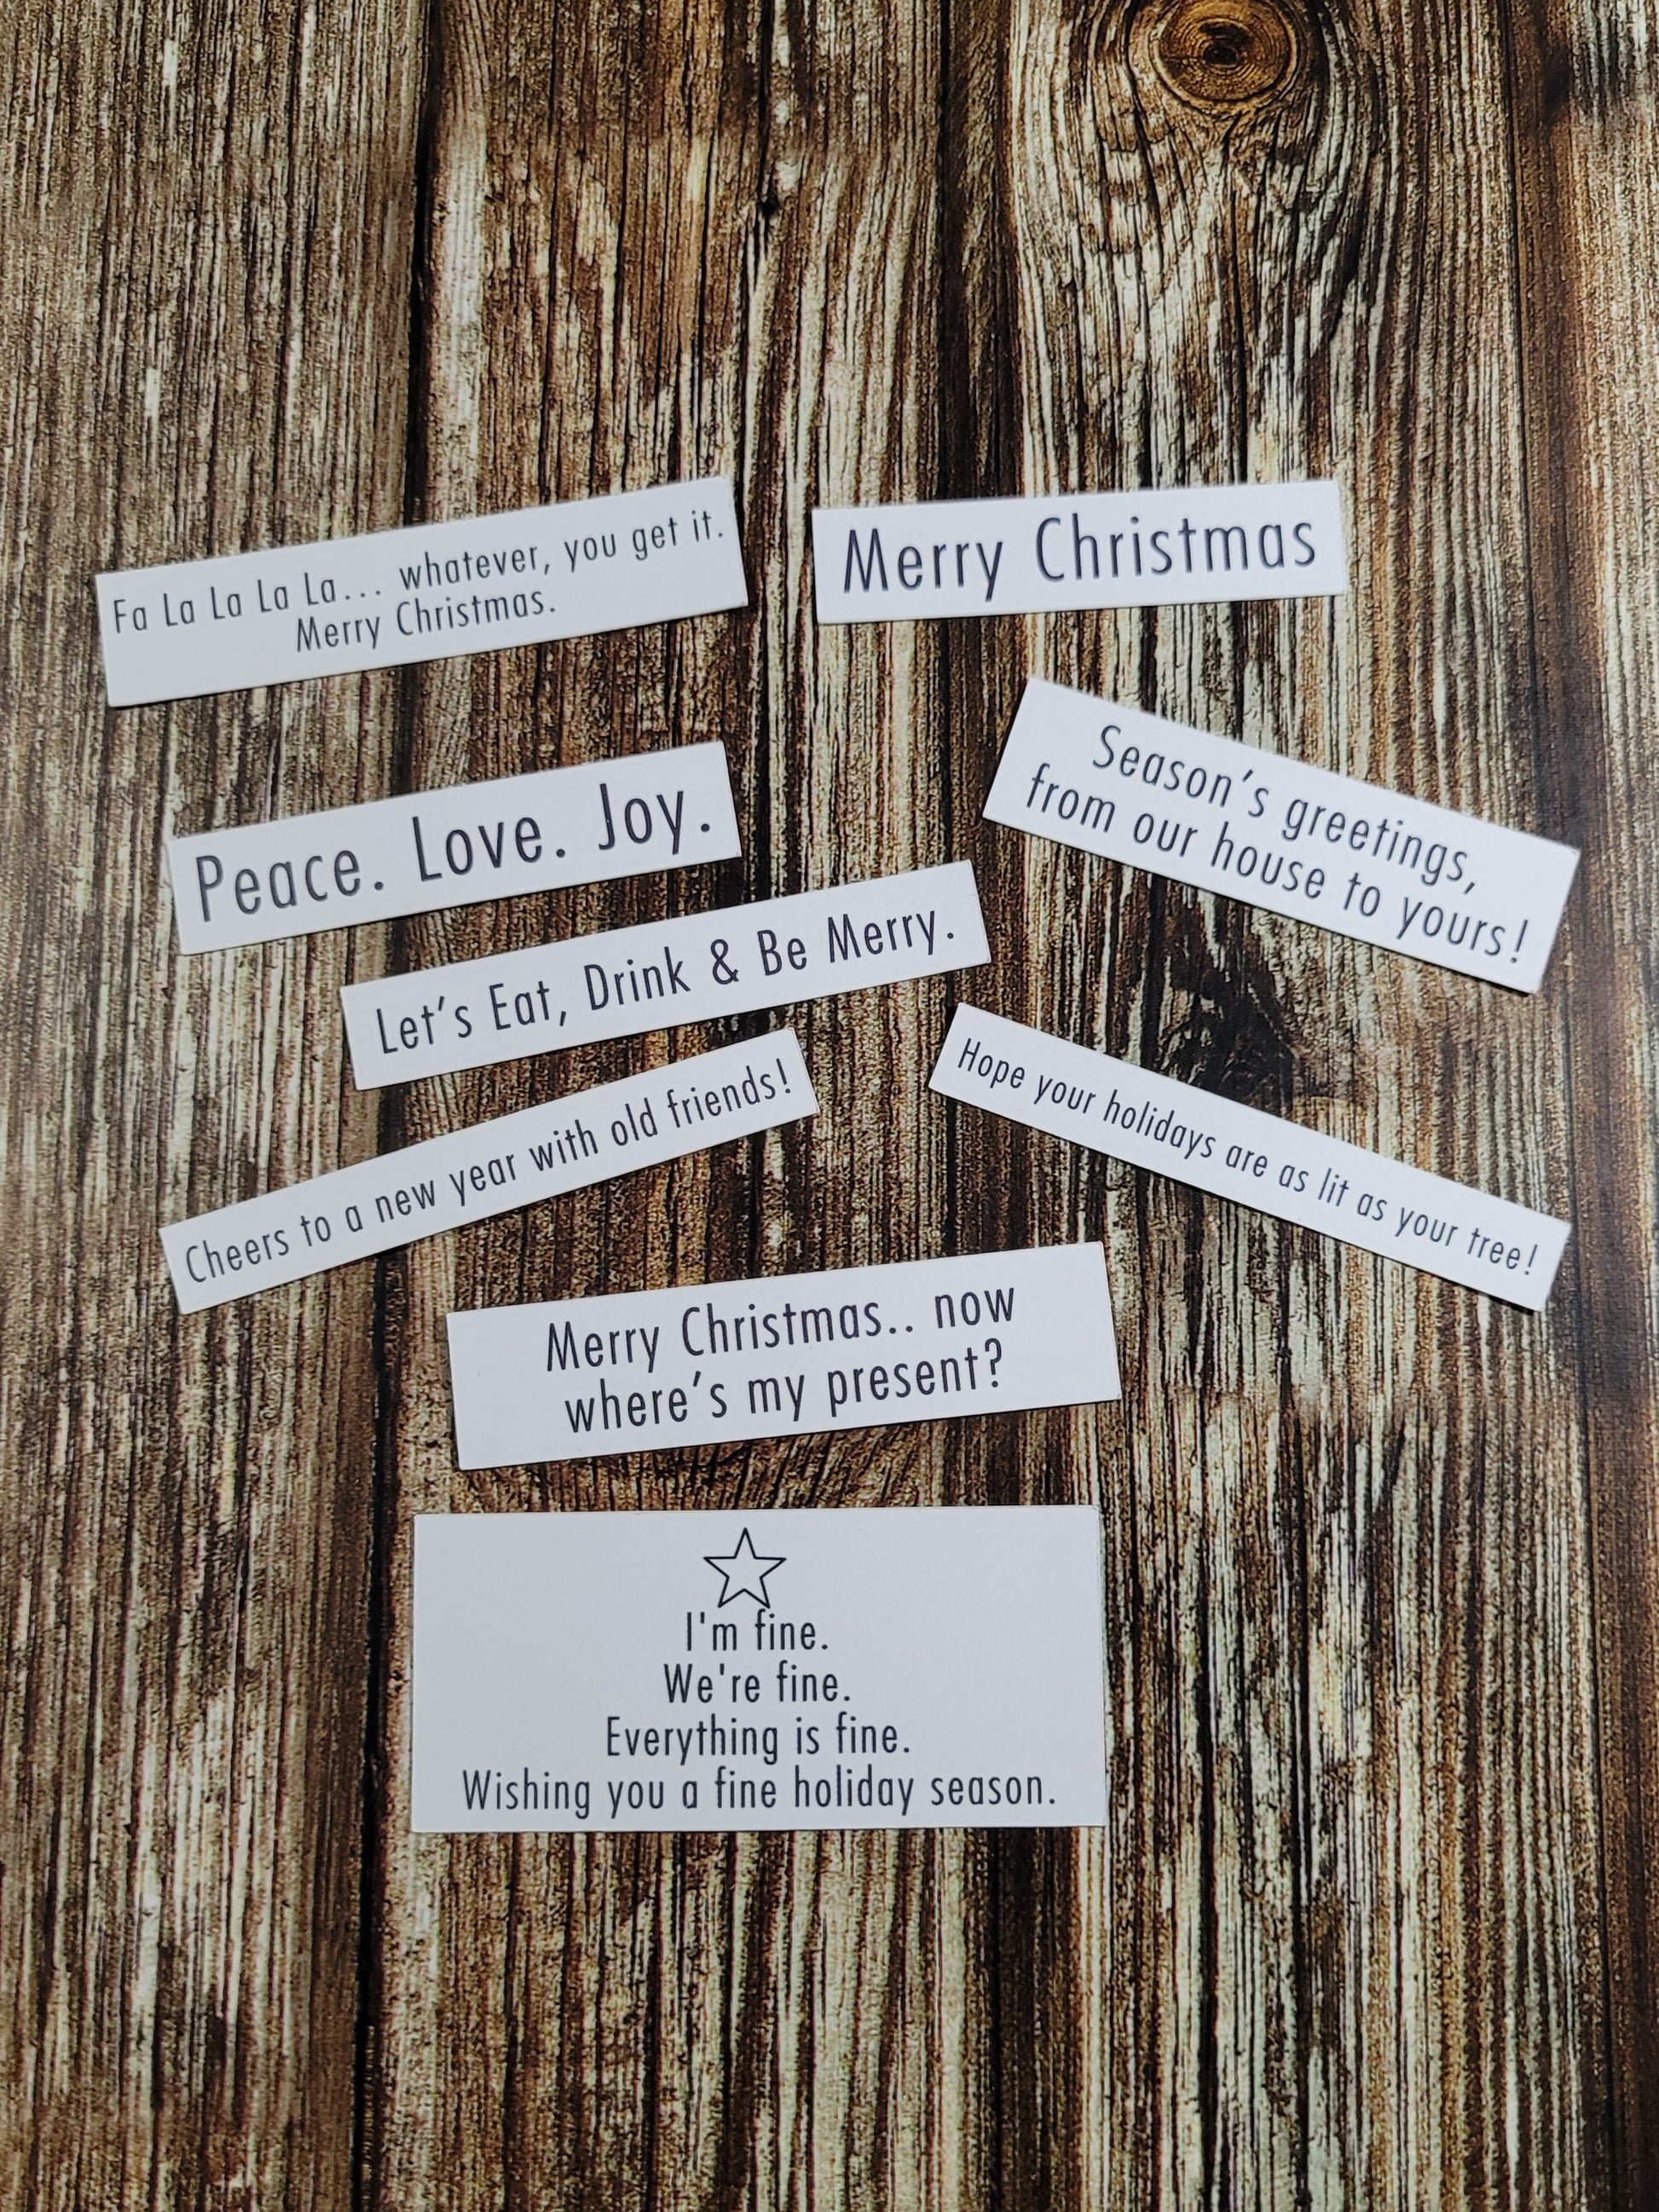 Fa La La La La... whatever, you get it.
Merry Christmas.
Merry Christmas
Peace. Love. Joy.
Season's greetings,
from our house to yours!
Let's Eat, Drink & Be Merry.
Cheers to a new year with old friends!
Hope your holidays are as lit as your tree!
Merry Christmas.. now
where's my present?
I'm fine.
We're fine.
Everything is fine.
Wishing you a fine holiday season.